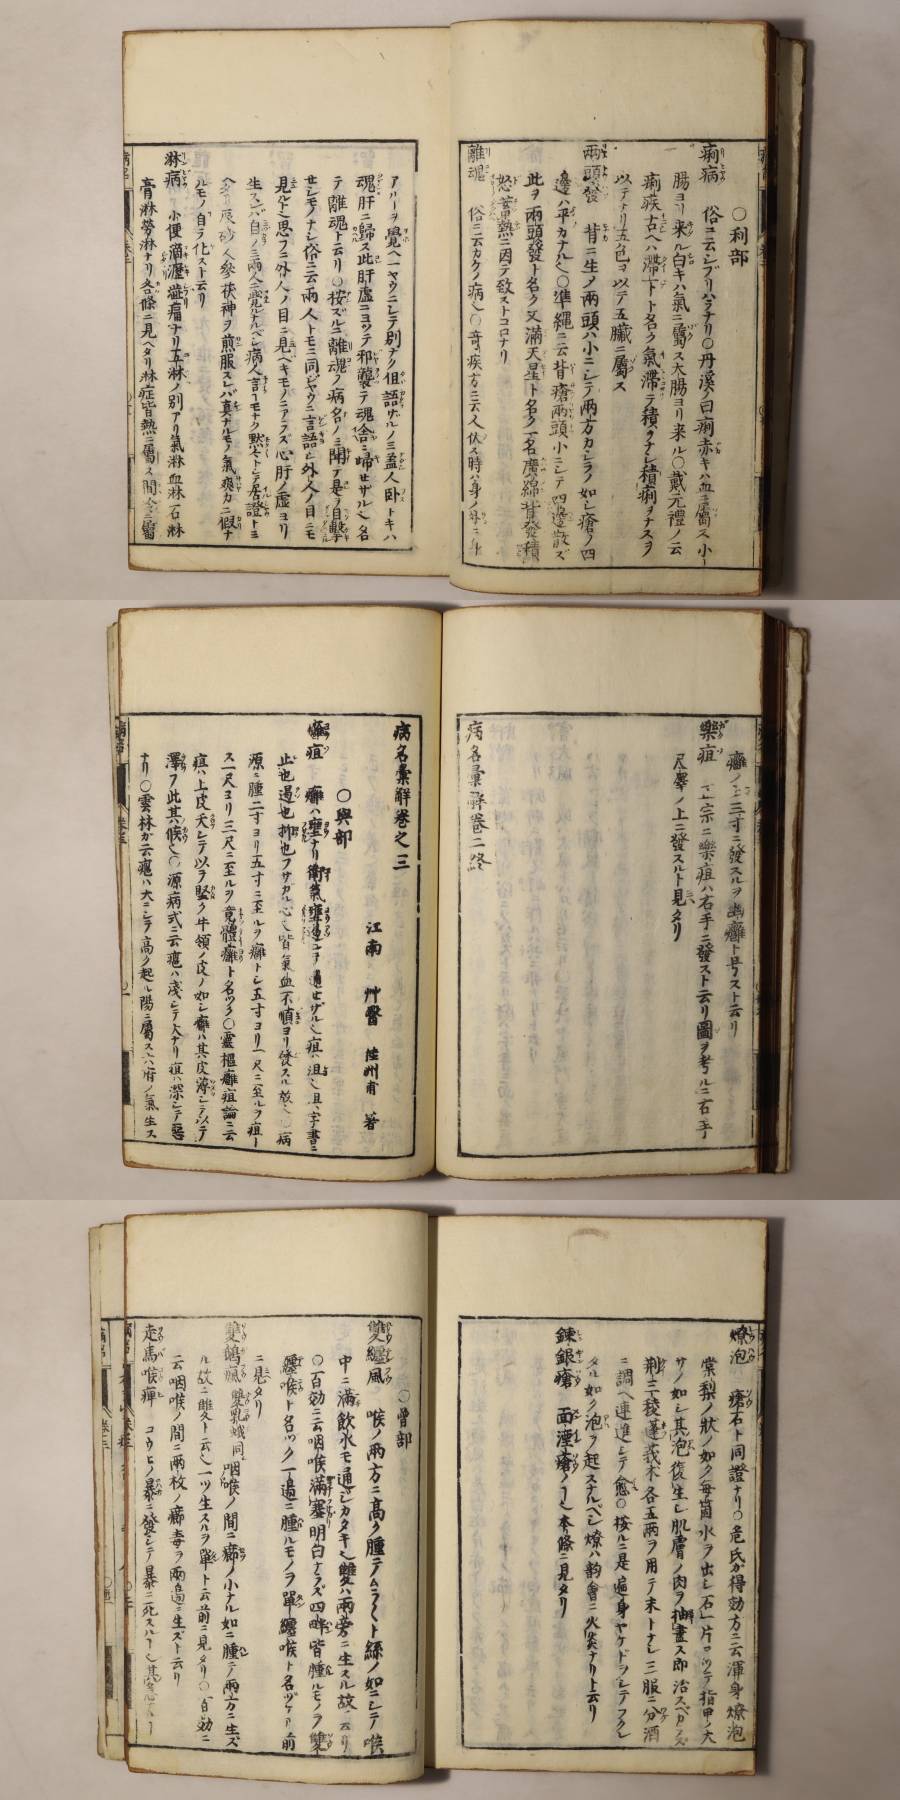 ○利部
痢病 俗ニ云シブリハラナリ○丹溪ノ曰痢赤キハ血ニ屬ス小
腸ヨリ来ル白キハ氣ニ屬ス大腸ヨリ来ル○戴元禮ノ云
痢疾古ヘハ滯下ト名ク氣滯テ積ヲナシ積痢ヲナスヲ
以テナリ五色ヲ以テ五臟ニ屬ス
兩頭發 背ニ生ノ兩頭ハ小ニシテ兩方カシラノ如シ瘡ノ四
邊ハ平カナル也○準繩ニ云背瘡兩頭小ニシテ四邊散ズ
此ヲ兩頭發ト名ク又滿天星ト名ク一名廣綿背發積
怒蓄熱ニ因テ致ストコロナリ
離魂 俗ニ云カゲノ病也○奇疾方ニ云人伏ス時ハ身ノ外ニ身
アリ一ヲ覺ヘ一ヤウニシテ別ナク但語ザルノミ盖人卧トキハ
魂肝ニ歸ス此肝虚ニヨツテ邪襲テ魂舎ニ歸セザル也名
テ離魂ト云リ○按ズルニ離魂ノ病名ノミ聞テ是ヲ自擊
セシモノナシ俗ニ云兩人トモニ同ジヤウニ言語シ外人ノ目ニモ
見ルト也思フニ外人ノ目ニ見ベキモノニアラズ心肝ノ虚ヨリ
生スレバ自ノミ兩人ニ覺ルナルベシ病人言ーモナク黙々トシテ居證トミ
ヘタリ辰砂人參茯神ヲ煎服スレバ真ナルモノ氣爽カニ假ナ
ルモノ自ラ化スト云リ
淋病 小便滴瀝澁痛ナリ五淋ノ別アリ氣淋血淋石淋
膏淋勞淋ナリ各條ニ見ヘタリ淋症皆熱ニ屬ス間冷ニ屬
癰ノ上三寸ニ發スルヲ幽癰ト号スト云リ
樂疽 正宗ニ樂疽ハ右手ニ發スト云リ圖ヲ考ルニ右手
尺澤ノ上ニ發スルト見タリ
病名彙解卷二終
病名彙解卷之三
江南 艸醫 蘆川桂洲甫 著
○與部
癰疽 癰ハ壅ナリ衛氣壅遏シテ通セザル也疽ハ沮也沮ハ字書ニ
止也遏也抑也フサガル心也皆氣血不順ヨリ發スル故也病
源ニ腫二寸ヨリ五寸ニ至ルヲ癰トシ五寸ヨリ一尺ニ至ルヲ疽ト
ス一尺ヨリ三尺ニ至ルヲ竟體癰ト名ツク○靈樞癰疽論ニ云
疽ハ上皮夭シテ以テ堅ク牛領ノ皮ノ如シ癰ハ其皮薄シテ以テ
澤フ此其候也○源病式ニ云瘡ハ淺シテ大ナリ疽ハ深シテ惡
ナリ○雲林カ云癰ハ大ニシテ高ク起ル陽ニ屬ス六府ノ氣生ス
燎泡 瘡石ト同證ナリ○危氏ガ得効方ニ云渾身燎泡
棠梨ノ狀ノ如ク每箇水ヲ出シ石一片ロツテ指甲ノ大
サノ如シ其泡復生シ肌膚ノ肉ヲ抽盡ス即治スベカラズ
荆三稜蓬莪朮各五兩ヲ用テ末トナシ三服ニ分酒
ニ調ヘ連進シテ愈○按ルニ是遍身ヤケドヲシテフクレ
タル如ク泡ヲ起スナルベシ燎ハ韵會ニ火炎ナリト云リ
鍊銀瘡 面湮瘡ノ一也本條ニ見タリ
○曾部
雙纏風 喉ノ兩方ニ高ク腫テムラ〱ト絲ノ如ニシテ喉
中ニ滿飲水モ通シカタキ也雙ハ兩旁ニ生スル故ニ云リ
○百効ニ云咽喉滿塞明白ナラズ四畔皆腫ルモノヲ雙
纏喉ト名ツク一邊ニ腫ルモノヲ單纏喉ト名ヅク前
ニ見タリ
雙鵝風 雙乳蛾同 咽喉ノ間ニ癤ノ小ナル如ニ腫テ兩方ニ生ズ
ル故ニ雙ト云也一ツ生スルヲ單ト云前ニ見タリ○百効ニ
云咽喉ノ間ニ兩枚ノ癤毒ヲ兩邊ニ生ズト云リ
走馬喉痺 コウヒノ暴ニ發シテ暴ニ死スルー也其急ナー